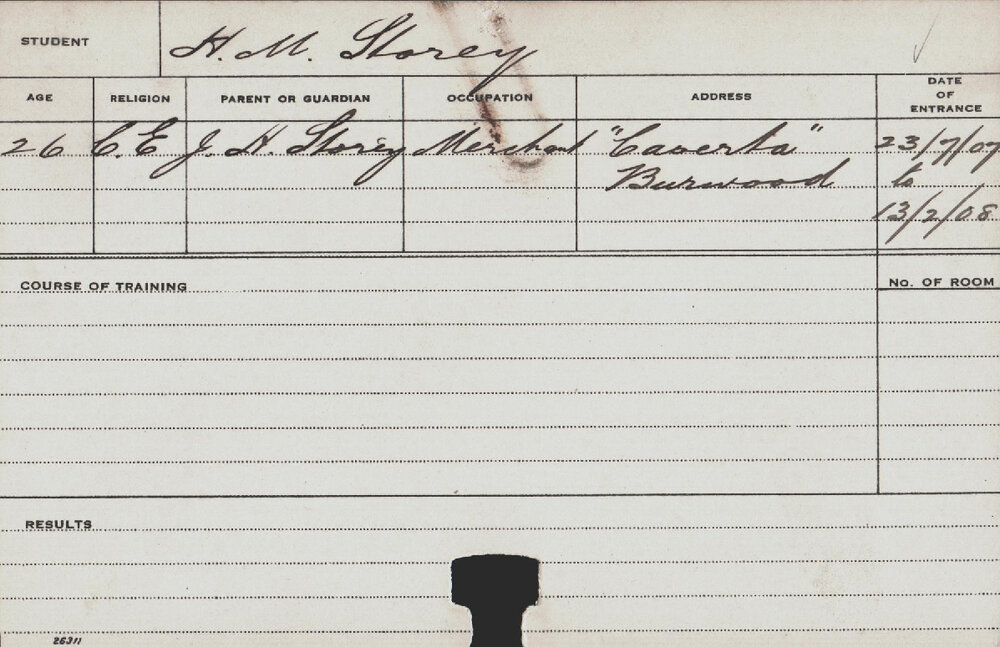 STUDENT H. M. Storey
AGE RELIGION PARENT OR GUARDIAN OCCUPATION ADDRESS DATE OF ENTRANCE
26 C.E J. H. Storey Merchant "Caverta" 23/7/07
Burwood to
13/2/08
COURSE OF TRAINING No. OF ROOM
RESULTS
26311